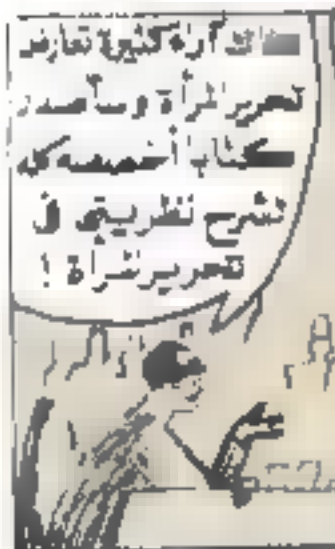 هناك آراء كثيرة تعارض
تحرير المرأة وسأصدر
كتابا أخصصه كى
نشرح نظريتى فى
تحرير المرأة !